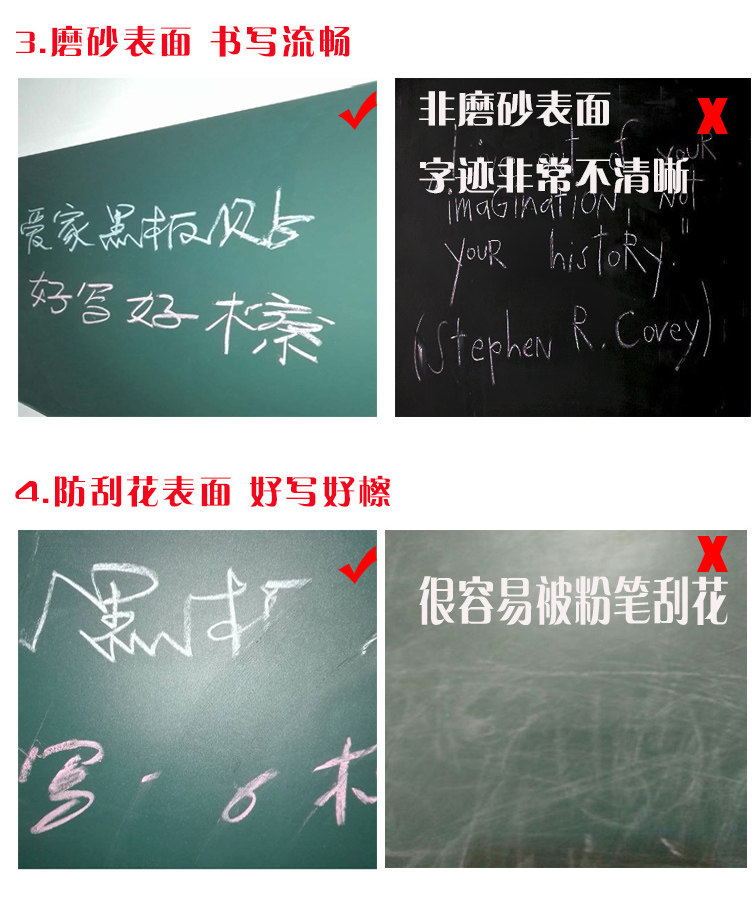 3.磨砂表面 书写流畅
爱家黑板贝占
好写好檫
非磨砂表面
字迹非常不清晰
out of your
imagination, not
your history.
(Stephen R. Covey)
4.防刮花表面 好写好檫
黑板
写
很容易被粉笔刮花